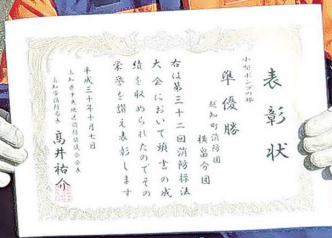 表彰状
小型ポンプの部
準優勝
越知町消防団
横畠分団
右は第三十二回消防操法
大会において頭書の成
績を収められたのでその
栄誉を讃え表彰します
平成三十年十月七日
高井祐介